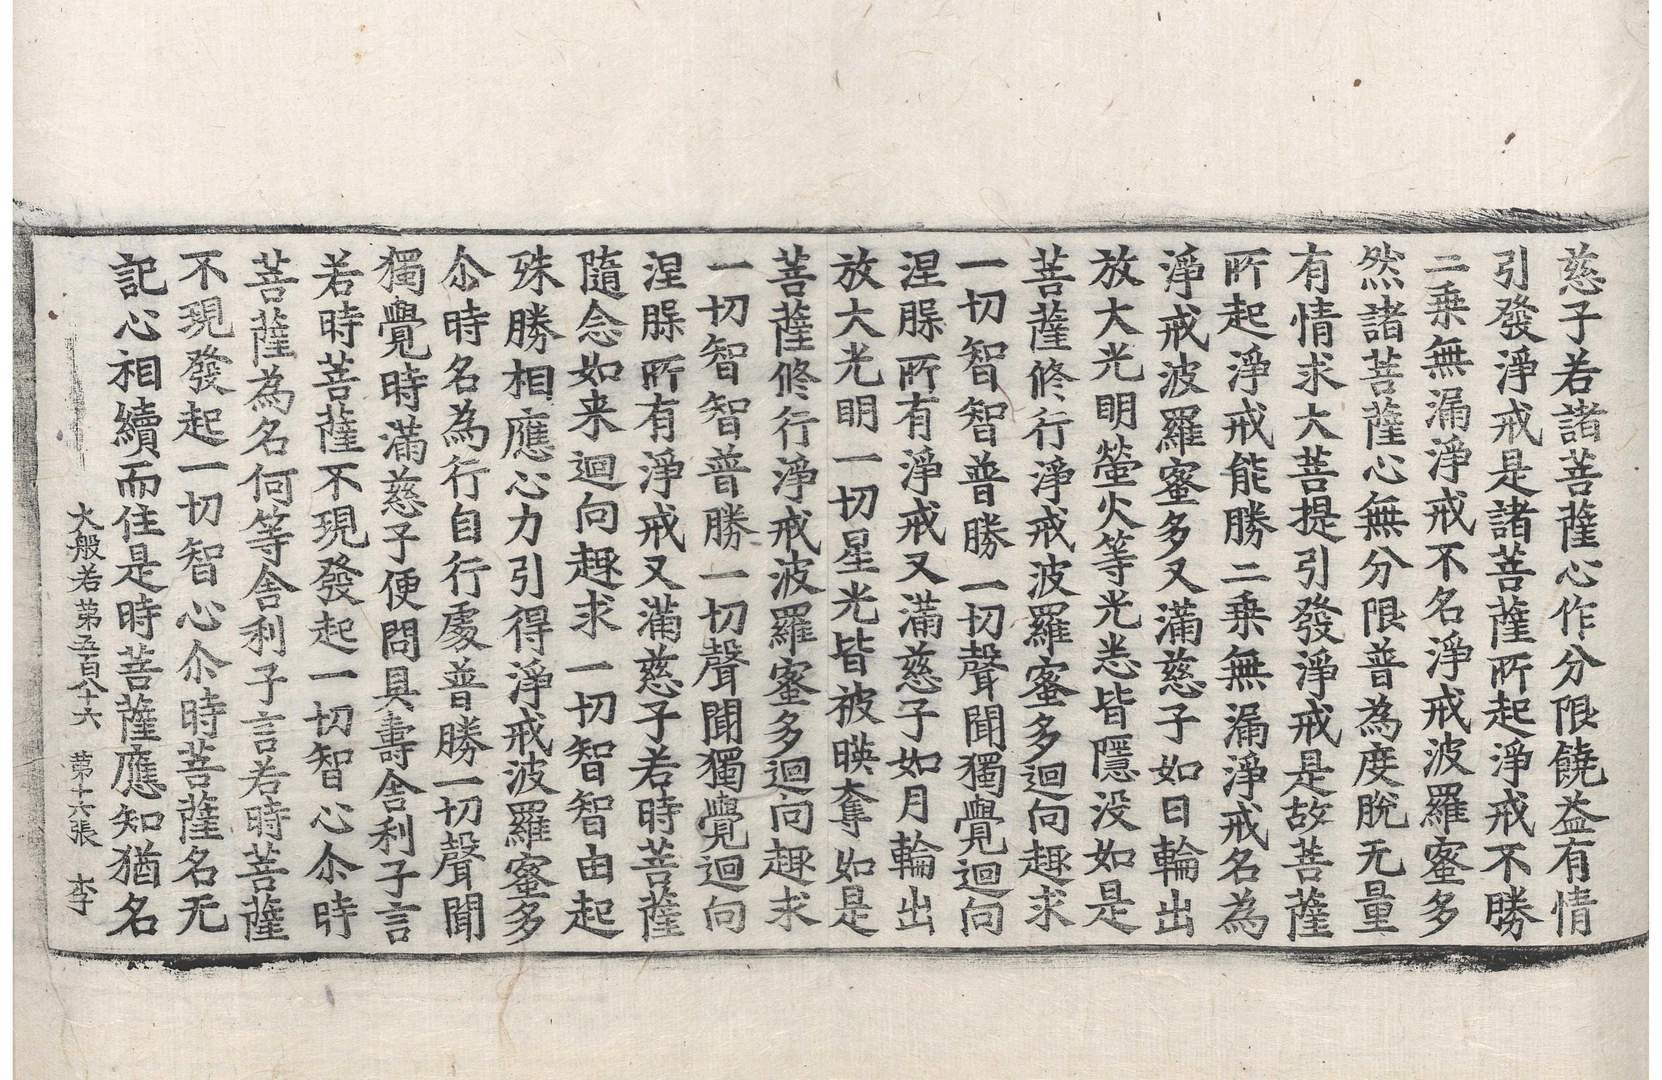 慈子若諸菩薩心作分限饒益有情
引發淨戒是諸菩薩所起淨戒不勝
二乗無漏淨戒不名淨戒波羅蜜多
然諸菩薩心無分限普為度脫无量
有情求大菩提引發淨戒是故菩薩
所起淨戒能勝二乗無漏淨戒名為
淨戒波羅蜜多又滿慈子如日輪出
放大光明螢火等光悉皆隱没如是
菩薩修行淨戒波羅蜜多迴向趣求
一切智智普勝一切聲聞獨覺迴向
涅槃所有淨戒又滿慈子如月輪出
放大光明一切星光皆被暎奪如是
菩薩修行淨戒波羅蜜多迴向趣求
一切智智普勝一切聲聞獨覺迴向
涅槃所有淨戒又滿慈子若時菩薩
隨念如来迴向趣求一切智智由起
殊勝相應心力引得淨戒波羅蜜多
尒時名為行自行處普勝一切聲聞
獨覺時滿慈子便問具壽舎利子言
若時菩薩不現發起一切智心尒時
菩薩為名何等舎利子言若時菩薩
不現發起一切智心尒時菩薩名无
記心相續而住是時菩薩應知猶名
大般若第五百八十六 第十六張 李